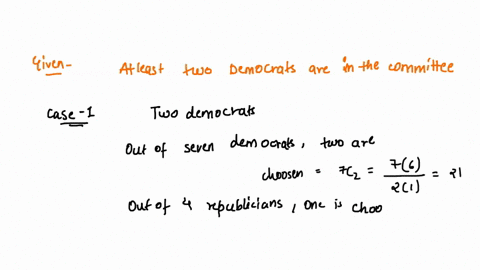 Given- Atleast two Democrats are in the committee
Case-1 Two democrats
Out of seven democrats, two are
choosen = 7C2 = 7(6)/2(1) = 21
Out of 4 republicians, one is choo